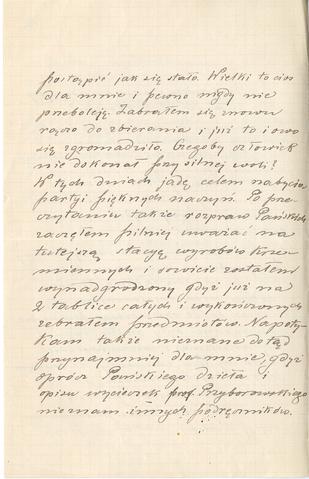 postąpić jak się stało. Wielki to cios
dla mnie i pewno nigdy nie
przeboleję. Zabrałem się znowu
raźno do zbierania i już to i owo
się zgromadziło. Czegoby człowiek
nie dokonał przy silnej woli!
W tych dniach jadę celem nabycia
partyi pięknych naczyń. Po prze-
czytaniu także rozpraw Pańskich
zacząłem pilniej uważać na
tutejszą stacyę wyrobów krze-
miennych i sowicie zostałem
wynadgrodzony gdyż już na
2 tablice całych i wykończonych
zebrałem przedmiotów. Napoty-
kam także nieznane dotąd
przynajmniej dla mnie, gdyż
oprócz Pańskiego dzieła i
opisu wycieczek prof. Przyborowskiego
nieznam innych podręczników.